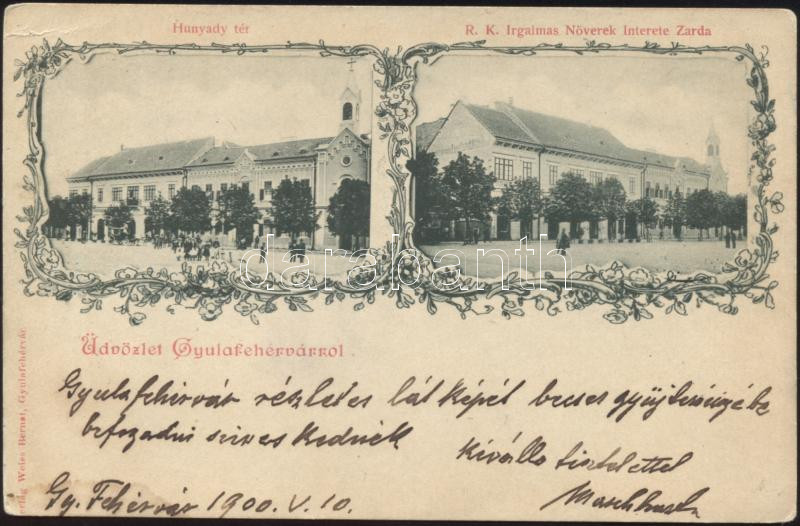 Hunyady tér
R. K. Irgalmas Növerek Interete Zarda
darabanth
Üdvözlet Gyulafehérvárról
Gyulafehérvár részletes lát képét becses gyüjteményébe
befogadni szives kednék
Kiválló tisztelettel
Gy. Fehérvár 1900. V. 10.
Verlag Weiss Bernat, Gyulafehérvár